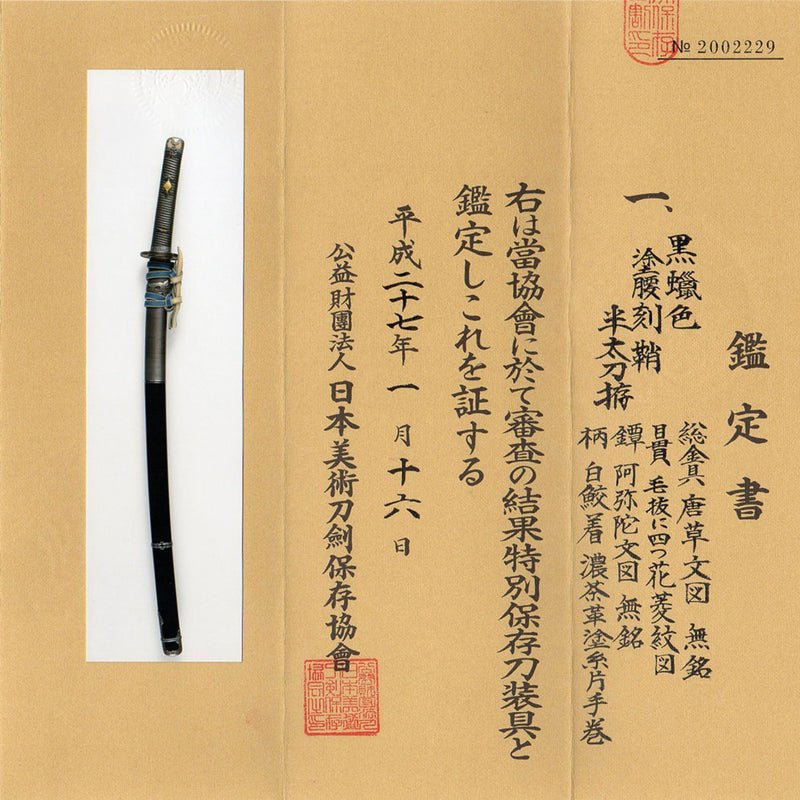 № 2002229
鑑定書
一、黒蠟色
塗腰刻鞘
半太刀拵
総金具 唐草文図 無銘
目貫 毛抜に四つ花菱紋図
鐔 阿弥陀文図 無銘
柄 白鮫着 濃茶革塗糸片手巻
右は當協會に於て審査の結果特別保存刀装具と
鑑定しこれを証する
平成二十七年一月十六日
公益財團法人 日本美術刀劍保存協會